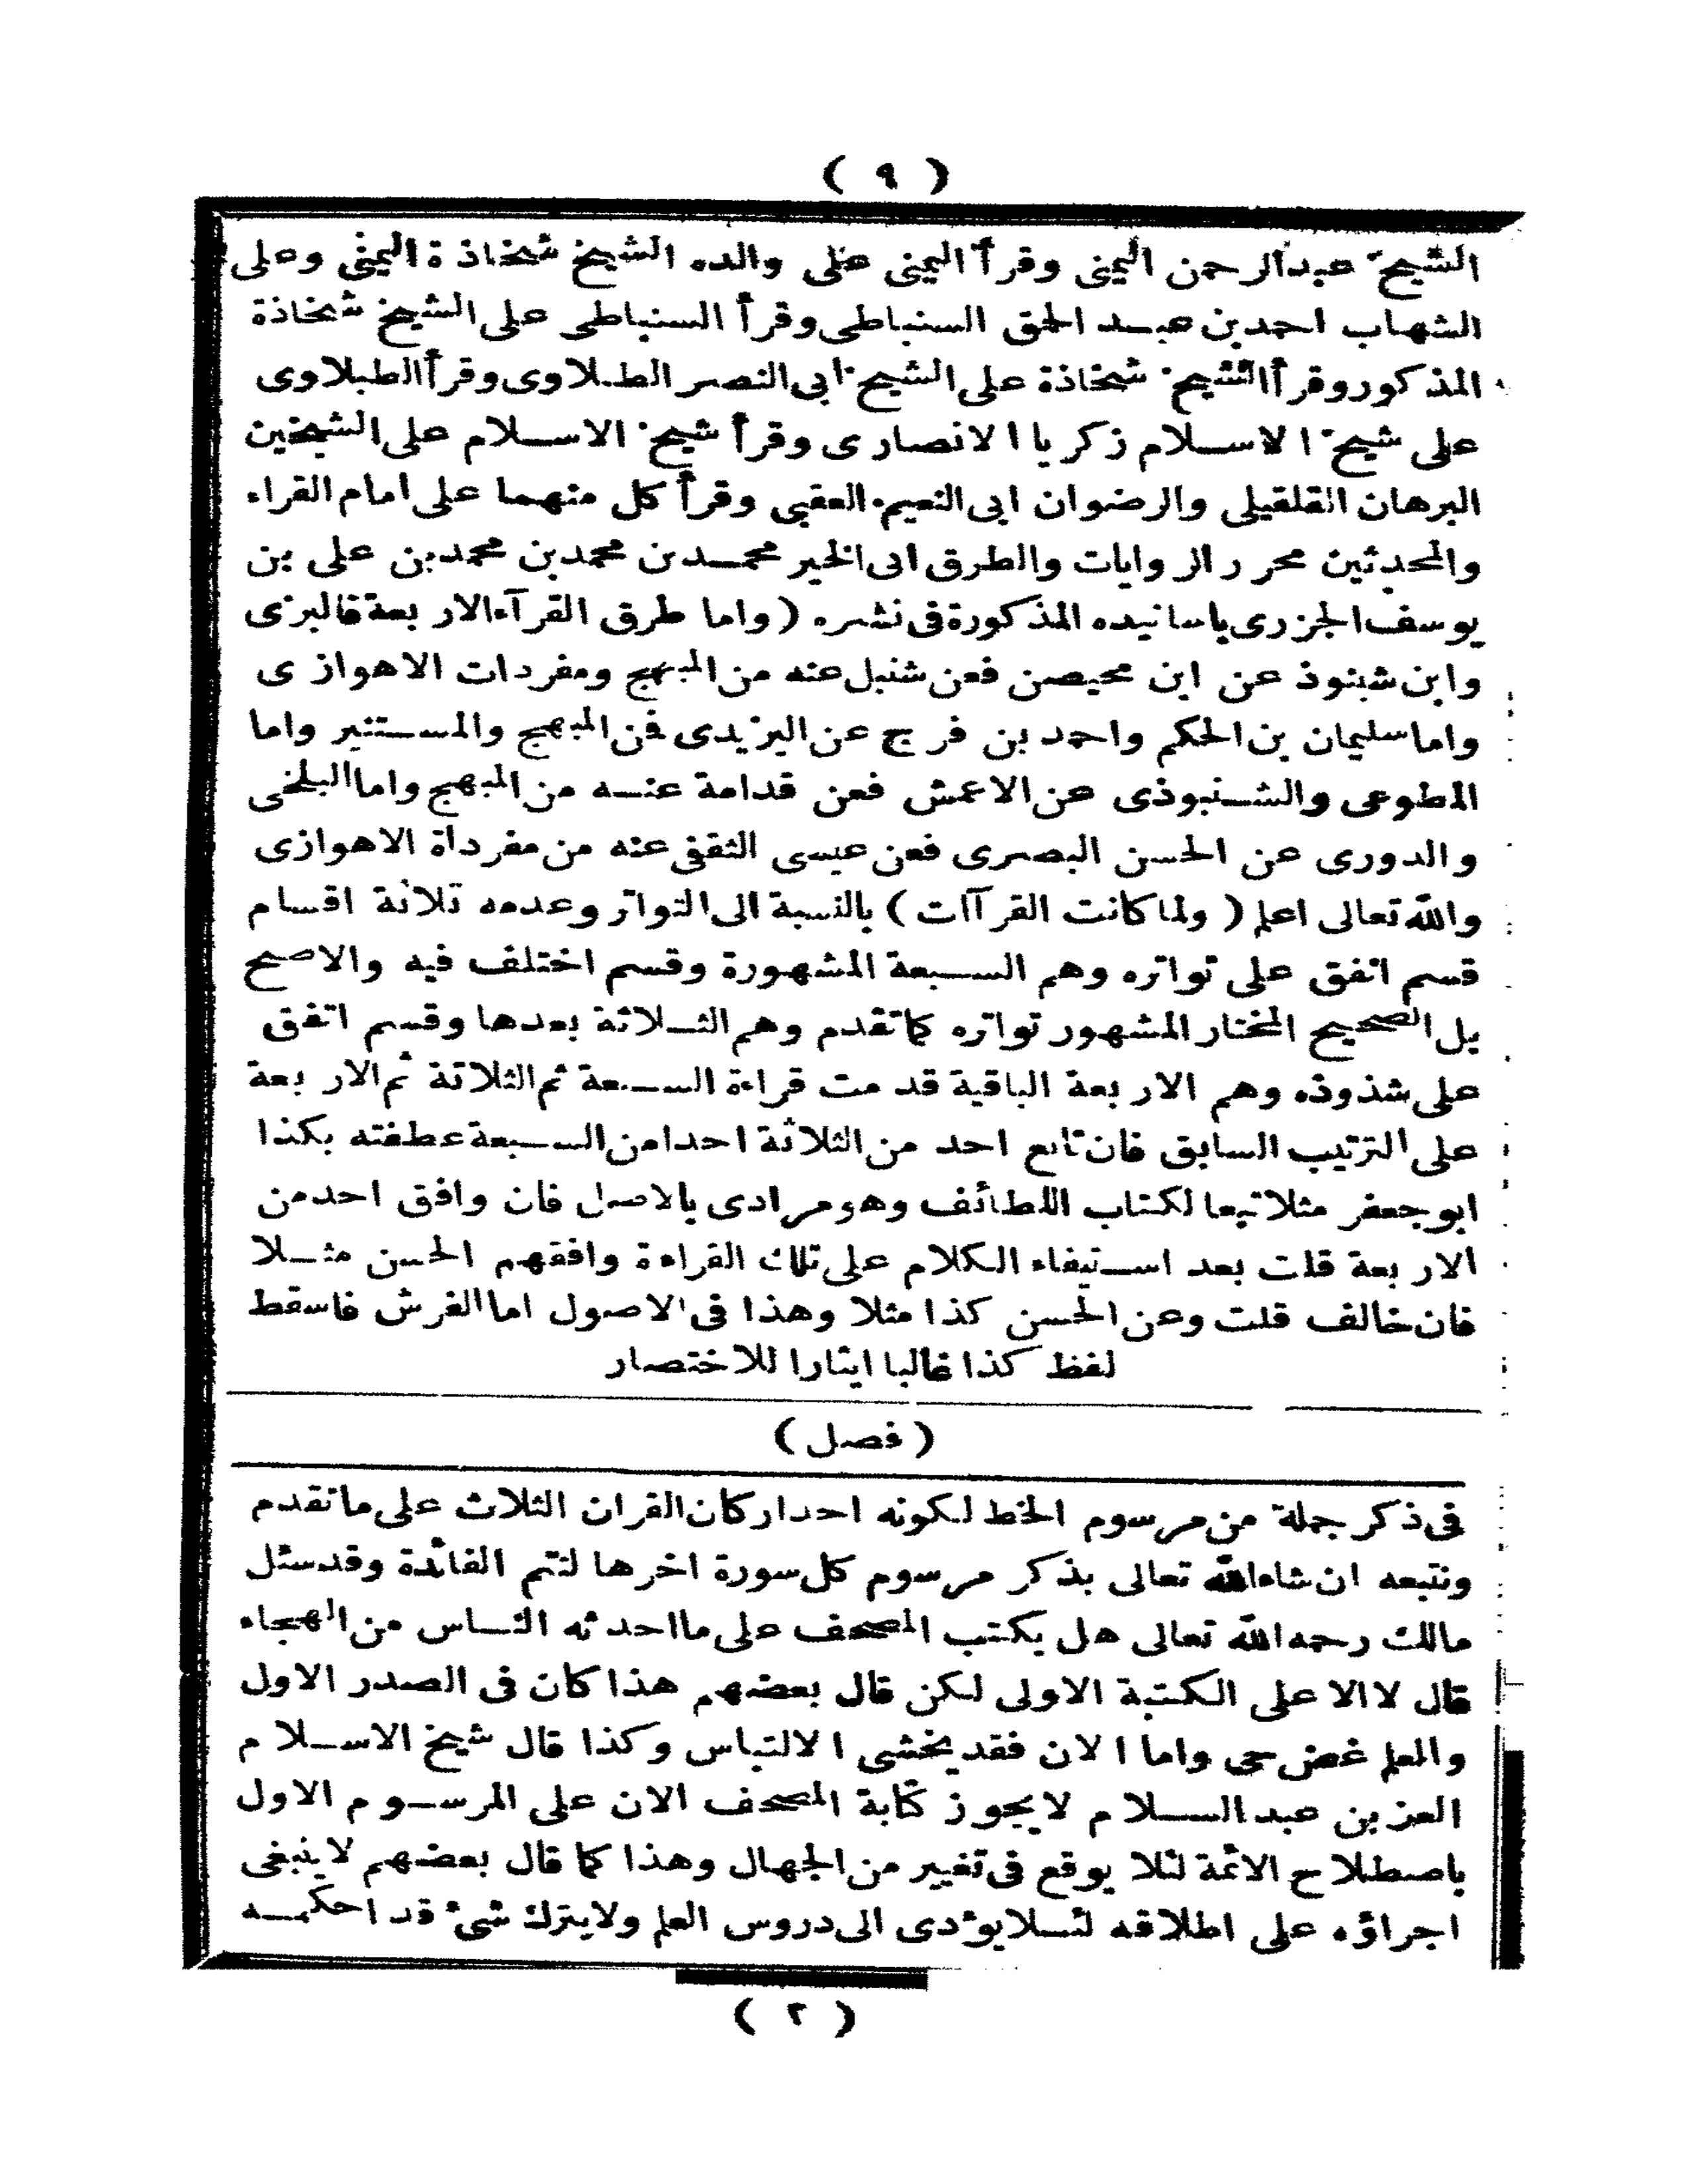 ( ٩ )
الشيخ عبدالرحمن اليمنى وقرأ اليمنى على والده الشيخ شخاذة اليمنى وعلى
الشهاب احمد بن عبد الحق السنباطى وقرأ السنباطى على الشيخ شخاذة
المذكور وقرأ الشيخ شخاذة على الشيخ ابى النصر الطبلاوى وقرأ الطبلاوى
على شيخ الاسلام زكريا الانصارى وقرأ شيخ الاسلام على الشيخين
البرهان القلقيلى والرضوان ابى النعيم العقبى وقرأ كل منهما على امام القراء
والمحدثين محرر الروايات والطرق ابى الخير محمد بن محمد بن محمد بن على بن
يوسف الجزرى باسانيده المذكورة فى نشره ( واما طرق القرآء الاربعة فالبزى
وابن شنبوذ عن ابن محيصن فعن شنبل عنه من المبهج ومفردات الاهوازى
واما سليمان بن الحكم واحمد بن فرج عن اليزيدى فمن المبهج والمستنير واما
المطوعى والشنبوذى عن الاعمش فعن قدامة عنه من المبهج واما البلخى
والدورى عن الحسن البصرى فعن عيسى الثقفى عنه من مفرداة الاهوازى
والله تعالى اعلم ( ولما كانت القرآات ) بالنسبة الى التواتر وعدمه ثلاثة اقسام
قسم اتفق على تواتره وهم السبعة المشهورة وقسم اختلف فيه والاصح
بل الصحيح المختار المشهور تواتره كما تقدم وهم الثلاثة بعدها وقسم اتفق
على شذوذه وهم الاربعة الباقية قدمت قراءة السبعة ثم الثلاثة ثم الاربعة
على الترتيب السابق فان تابع احد من الثلاثة احدا من السبعة عطفته بكذا
ابو جعفر مثلا تبعا لكتاب اللطائف وهو مرادى بالاصل فان وافق احد من
الاربعة قلت بعد استيفاء الكلام على تلك القراءة وافقهم الحسن مثلا
فان خالف قلت وعن الحسن كذا مثلا وهذا فى الاصول اما الفرش فاسقط
لفظ كذا غالبا ايثارا للاختصار
( فصل )
فى ذكر جملة من مرسوم الخط لكونه احد اركان القران الثلاث على ما تقدم
ونتبعه ان شاء الله تعالى بذكر مرسوم كل سورة اخرها لتتم الفائدة وقد سئل
مالك رحمه الله تعالى هل يكتب المصحف على ما احدثه الناس من الهجاء
قال لا الا على الكتبة الاولى لكن قال بعضهم هذا كان فى الصدر الاول
والعلم غض حى واما الان فقد يخشى الالتباس وكذا قال شيخ الاسلام
العز بن عبد السلام لا يجوز كتابة المصحف الان على المرسوم الاول
باصطلاح الائمة لئلا يوقع فى تغيير من الجهال وهذا كما قال بعضهم لا ينبغى
اجراؤه على اطلاقه لئلا يؤدى الى دروس العلم ولا يترك شئ قد احكمه
( ٢ )